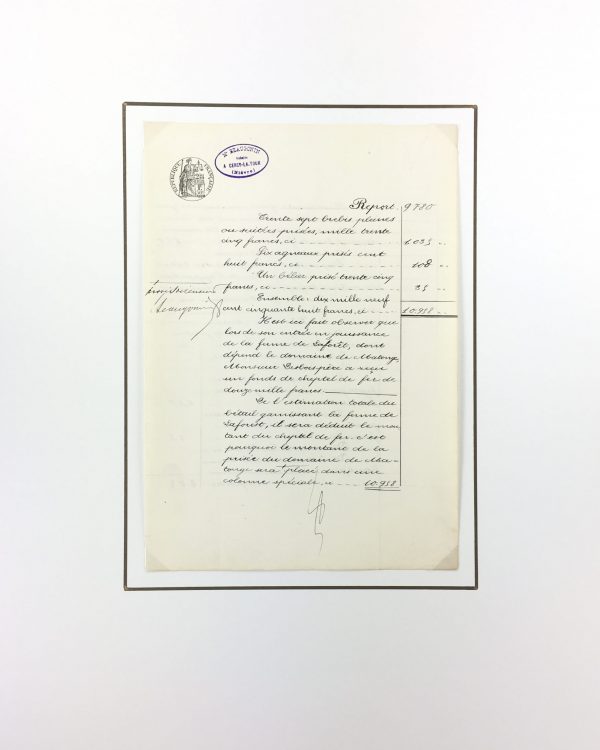 RÉPUBLIQUE FRANÇAISE
Mᵉ BEAUGONIN
Notaire
A CERCY-LA-TOUR
(Nièvre)
Report 9780
Trente sept brebis pleines
ou suitées prisées, mille trente
cinq francs, ci 1035
Dix agneaux prisés cent
huit francs, ci 108
Un bélier prisé trente cinq
francs, ci 35
Ensemble: dix mille neuf
cent cinquante huit francs, ci 10.958
Beaugonin
Il est ici fait observer que
lors de son entrée en jouissance
de la ferme de Laforêt, dont
dépend le domaine de
Monsieur père a reçu
un fonds de cheptel de fer de
douze mille francs.
De l'estimation totale du
bétail garnissant la ferme de
Laforêt, il sera déduit le mon
tant du cheptel de fer. C'est
pourquoi le montant de la
prisée du domaine de
sera placé dans une
colonne spéciale, ci 10.958